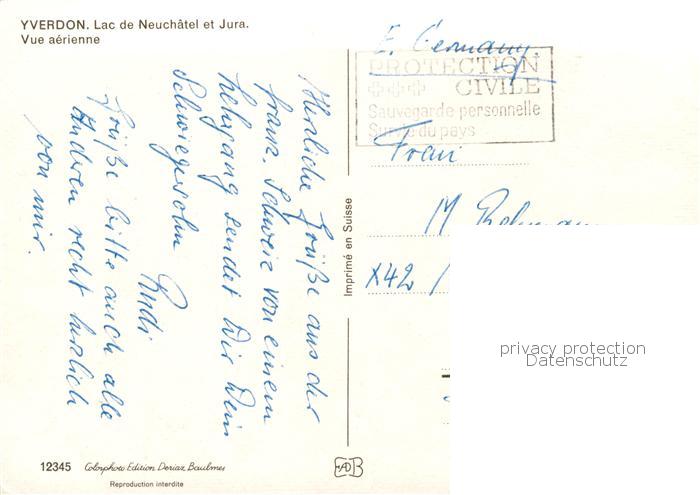 YVERDON. Lac de Neuchâtel et Jura.
Vue aérienne
Herzliche Grüße aus der
franz. Schweiz von einem
Lehrgang sendet Dir Dein
Schwiegersohn
Rudi
Grüße bitte auch alle
Anderen recht herzlich
von mir.
12345 Colorphoto Edition Deriaz Baulmes
Reproduction interdite
Imprimé en Suisse
Germany
PROTECTION
CIVILE
Sauvegarde personnelle
Survie du pays
Frau
M
X42
privacy protection
Datenschutz